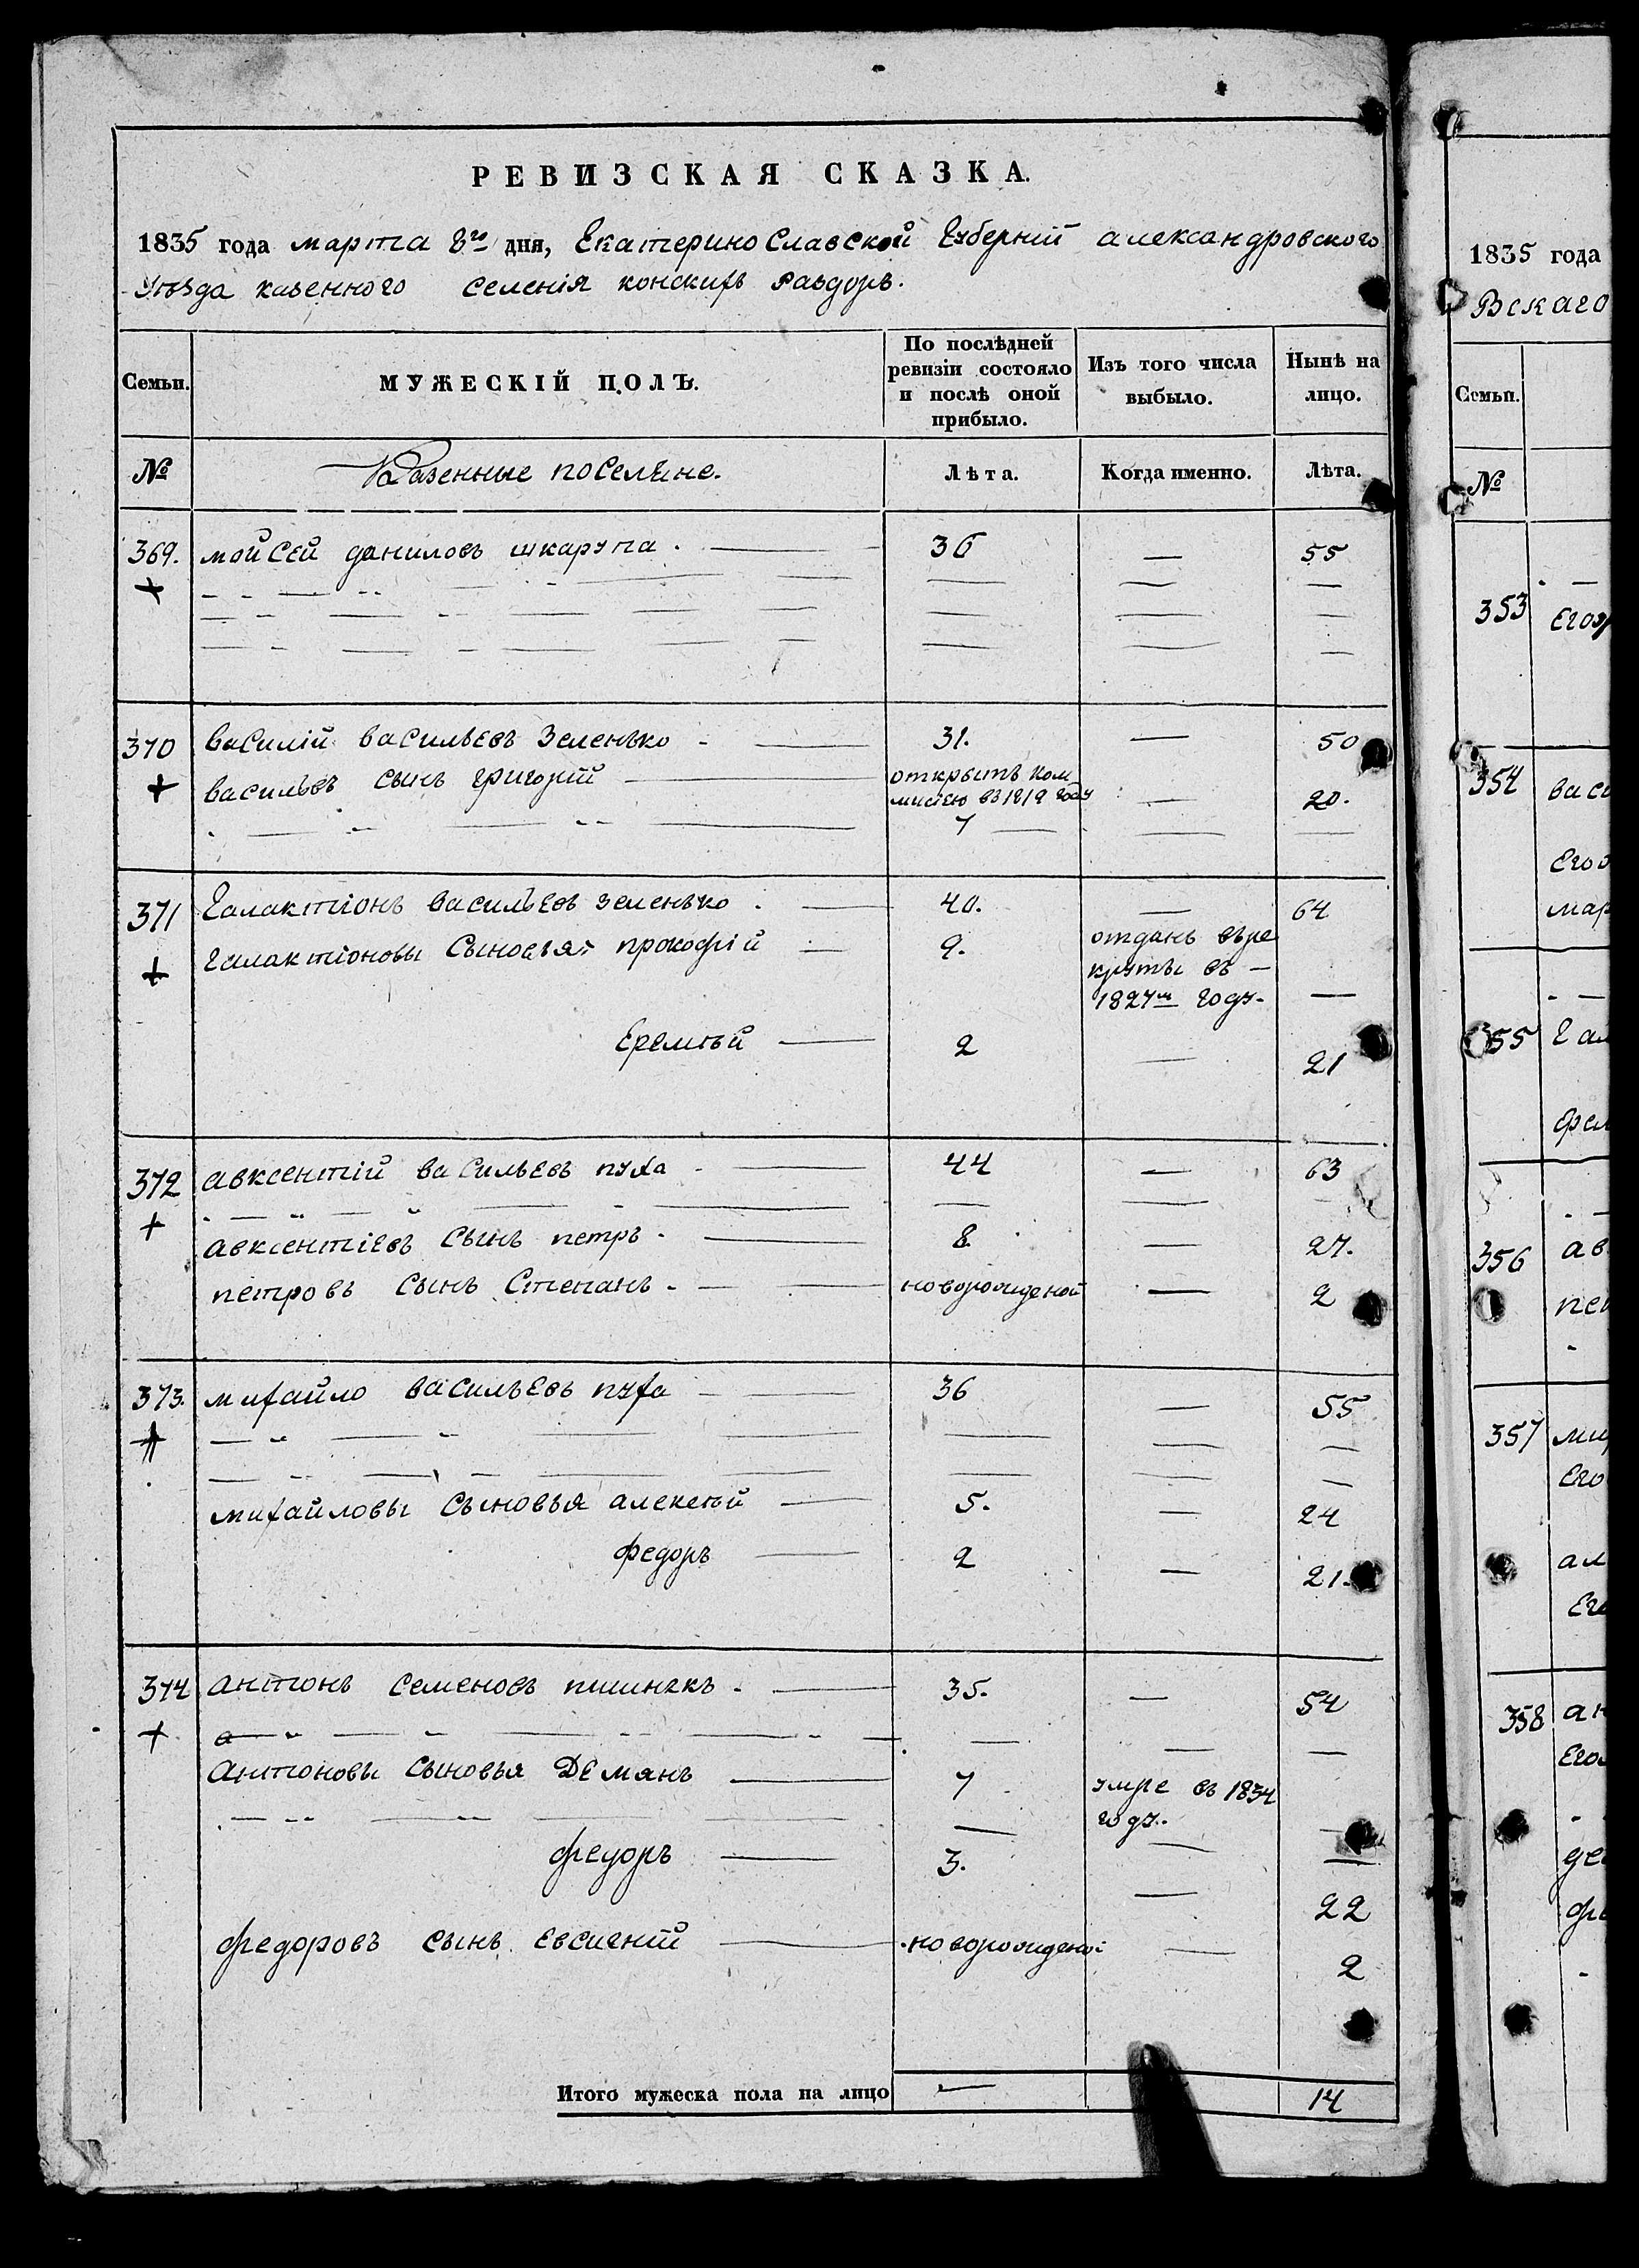 РЕВИЗСКАЯ СКАЗКА.
1835 года марта 8го дня, Екатеринославской Губерніи александровского
Уѣзда казенного селенія конскихъ раздоръ.
Семьи. МУЖЕСКІЙ ПОЛЪ. По послѣдней ревизіи состояло и послѣ оной прибыло. Изъ того числа выбыло. Нынѣ на лицо.
№ Казенные поселяне. Лѣта. Когда именно. Лѣта.
369. мойсей даниловъ шкарупа. — 36 — 55
370 василій васильевъ Зеленько - — 31. — 50
васильевъ сынъ григорій — открытъ ком
мисіею въ 1819 году — 20.
7
371 Галактіонъ васильевъ зеленько. — 40. — 64
галактіоновы сыновья: прокофій — 9. отданъ въре
круты въ —
1827м году. —
Еремѣй — 2 — 21
372 авксентій васильевъ пуха - — 44 — 63
авксентіевъ сынъ петръ. — 8. — 27.
петровъ сынъ Степанъ. — новорожденой — 2
373. михайло васильевъ пуха — 36 — 55
михайловы сыновья алексѣй — 5. — 24
федоръ — 2 — 21.
374 антонъ семеновъ пишнякъ. — 35. — 54
антоновы сыновья Демянъ — 7 умре въ 1834
году.
федоръ — 3. — 22
федоровъ сынъ Евсиеній — новорожденой — 2
Итого мужеска пола на лицо — 14
1835 года
Вскаго
Семьи.
№
353
354 васи
Его
мар
355 Гал
356 ав
357
Его
ал
Его
358 ан